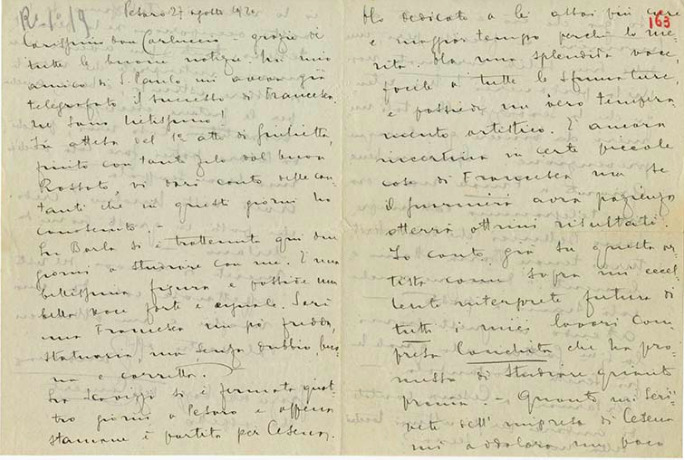 Pesaro 27 agosto 1920
Carissimo don Carluccio, grazie di
tutte le buone notizie. Un mio
amico di S. Paulo mi aveva già
telegrafato il successo di Francesca.
Ne sono lietissimo!
In attesa del 1º atto di Giulietta,
finito con tanto zelo dal buon
Rossato, vi darò conto delle can-
tanti che in questi giorni ho
conosciuto. -
La Barla si è trattenuta qui due
giorni a studiare con me. È una
bellissima figura e possiede una
bella voce forte e eguale. Sarà
una Francesca un po' fredda,
statuaria, ma senza dubbio, buo-
na e corretta.
La Scavizzi si è fermata quat-
tro giorni a Pesaro e appena
stamane è partita per Cesena.
163
Ho dedicato a lei assai più cure
e maggior tempo perché lo me-
rita. Ha una splendida voce,
facile a tutte le sfumature,
e possiede un vero tempera-
mento artistico. È ancora
incertina in certe piccole
cose di Francesca ma se
il Guarnieri avrà pazienza
otterrà ottimi risultati.
Io conto già su questa ar-
tista come sopra un eccel-
lente interprete futura di
tutti i miei lavori com-
presa Conchita che ha pro-
messo di studiare quanto
prima. - Quanto mi scri-
vete dell'impresa di Cesena
mi addolora un poco